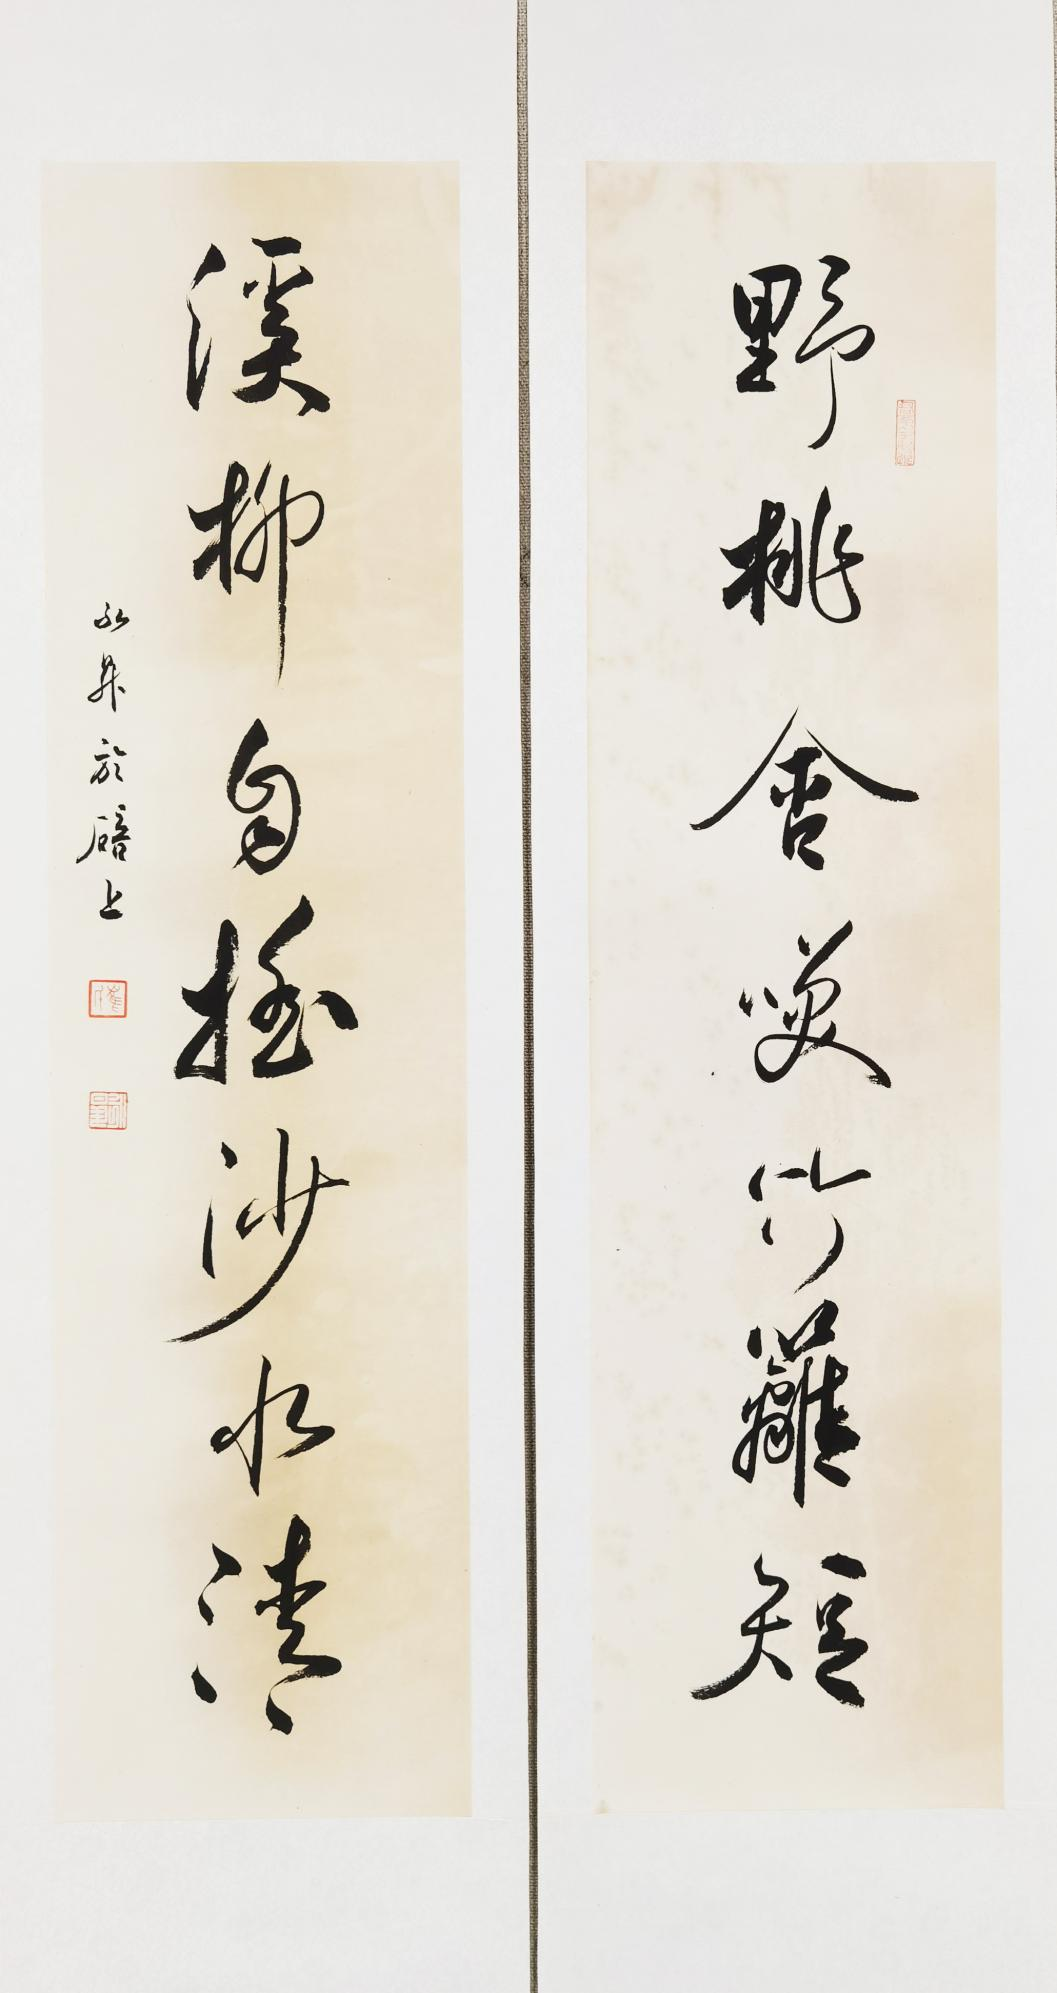 野桃含笑竹籬短
溪柳自搖沙水清
於碚上